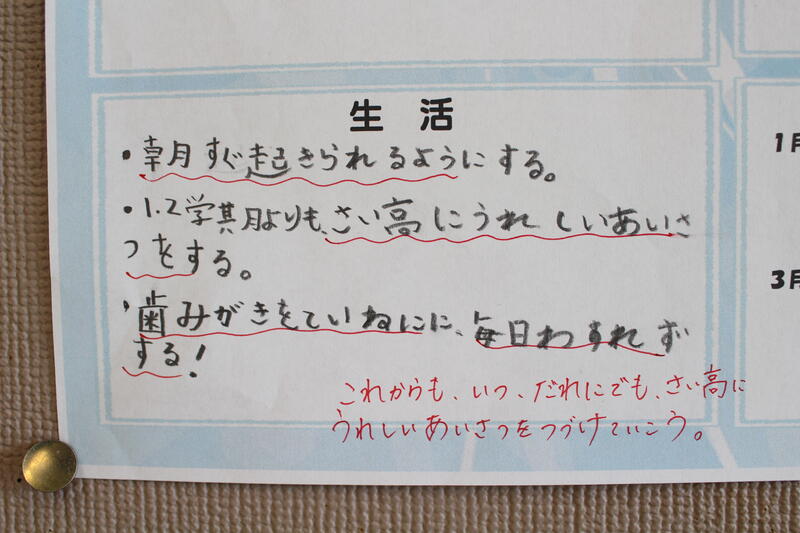 生 活
・朝すぐ起きられるようにする。
1月
・1.2学期よりも、さい高にうれしいあいさ
つをする。
3月
・歯みがきをていねいに、毎日わすれず
する!
これからも、いつ、だれにでも、さい高に
うれしいあいさつをつづけていこう。